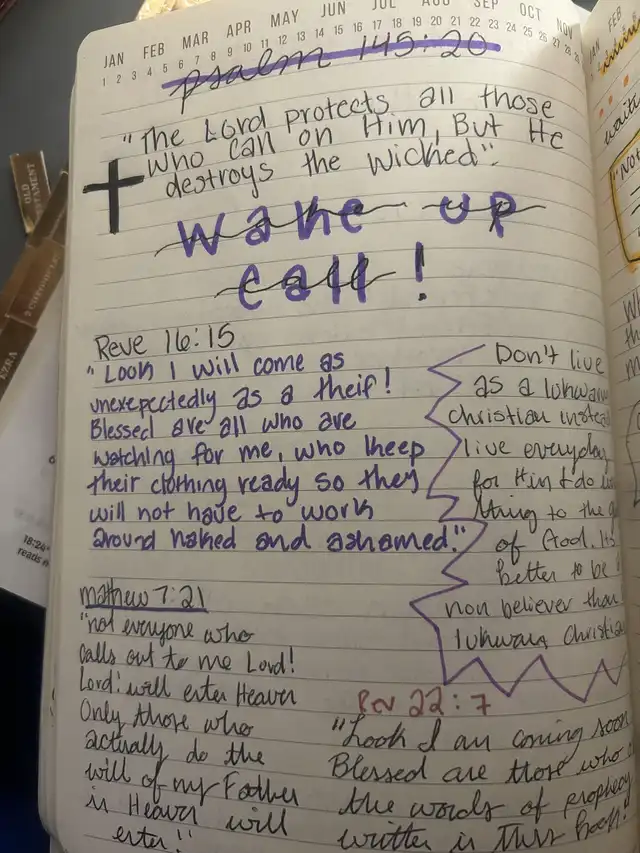 JAN FEB MAR APR MAY JUN JUL AUG SEP OCT NOV
1 2 3 4 5 6 7 8 9 10 11 12 13 14 15 16 17 18 19 20 21 22 23 24 25 26 27 28
Psalm 145:20
"The Lord protects all those
who call on Him, But He
destroys the wicked".
wake up
call!
Reve 16:15
"Look I will come as
unexepectedly as a theif!
Blessed are all who are
watching for me, who kheep
their clothing ready so they
will not have to work
around naked and ashamed."
Don't live
as a lukwarm
christian instead
live everyday
for Him & do
thing to the
of God. Its
better to be
non believer than
lukwarm Christian
mathew 7:21
"not everyone who
calls out to me Lord!
Lord! will enter Heaven
Only those who
actually do the
will of my Father
in Heaven will
enter!"
Rev 22:7
"Look I am coming soon
Blessed are those who
the words of prophecy
written in this book!
OLD
TESTAMENT
EZRA
18:24
reads
JAN FEB